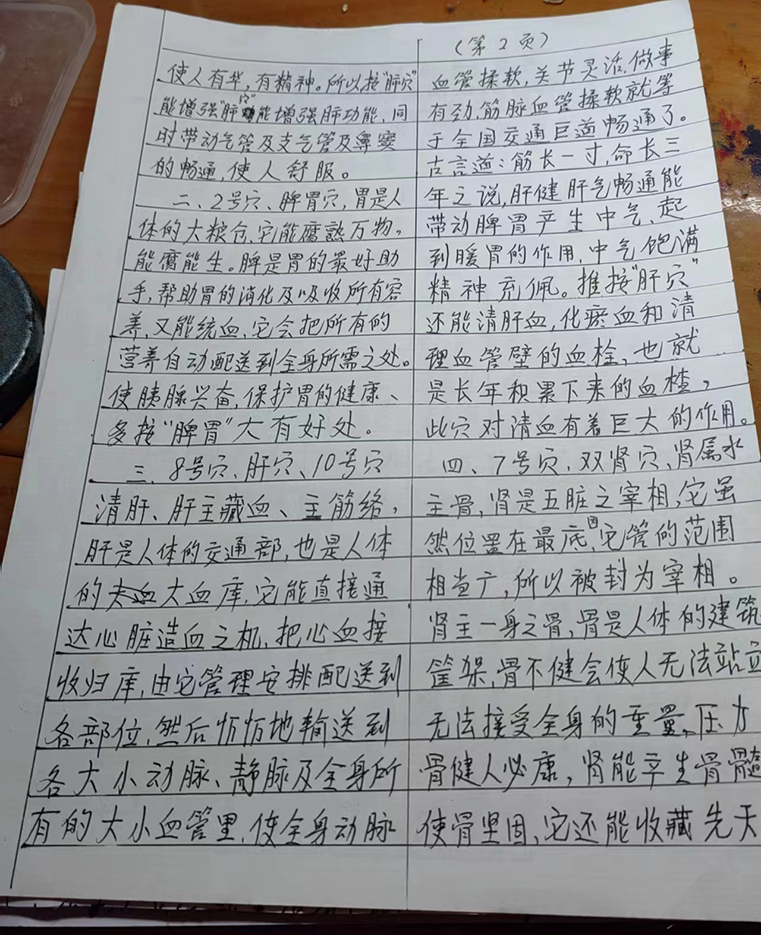 (第2页)
使人有华,有精神。所以按"肺穴"
能增强"肺能增强肺功能,同
时带动气管及支气管及鼻窦
的畅通,使人舒服。
二、2号穴、脾胃穴,胃是人
体的大粮仓,它能腐熟万物,
能腐能生。脾是胃的最好助
手,帮助胃的消化及吸收所有容
养,又能统血,它会把所有的
营养自动配送到全身所需之处。
使胰腺兴奋,保护胃的健康、
多按"脾胃"大有好处。
三、8号穴、肝穴、10号穴
清肝、肝主藏血、主筋络,
肝是人体的交通部,也是人体
的大血库,它能直接通
达心脏造血之机,把心血接
收归库,由它管理安排配送到
各部位,然后忻忻地输送到
各大小动脉、静脉及全身所
有的大小血管里,使全身动脉
血管揉软,关节灵活,做事
有劲,筋脉血管揉软就等
于全国交通巨道畅通了。
古言道:筋长一寸,命长三
年之说,肝健肝气畅通能
带动脾胃产生中气,起
到暖胃的作用,中气饱满
精神充佩。推按"肝穴"
还能清肝血,化瘀血和清
理血管壁的血栓,也就
是长年积累下来的血楂,
此穴对清血有着巨大的作用。
四、7号穴,双肾穴,肾属水
主骨,肾是五脏之宰相,它虽
然位置在最底,但它管的范围
相当广,所以被封为宰相。
肾主一身之骨,骨是人体的建筑
筐架,骨不健会使人无法站立
无法接受全身的重量、压力
骨健人必康,肾能产生骨髓
使骨坚固,它还能收藏先天